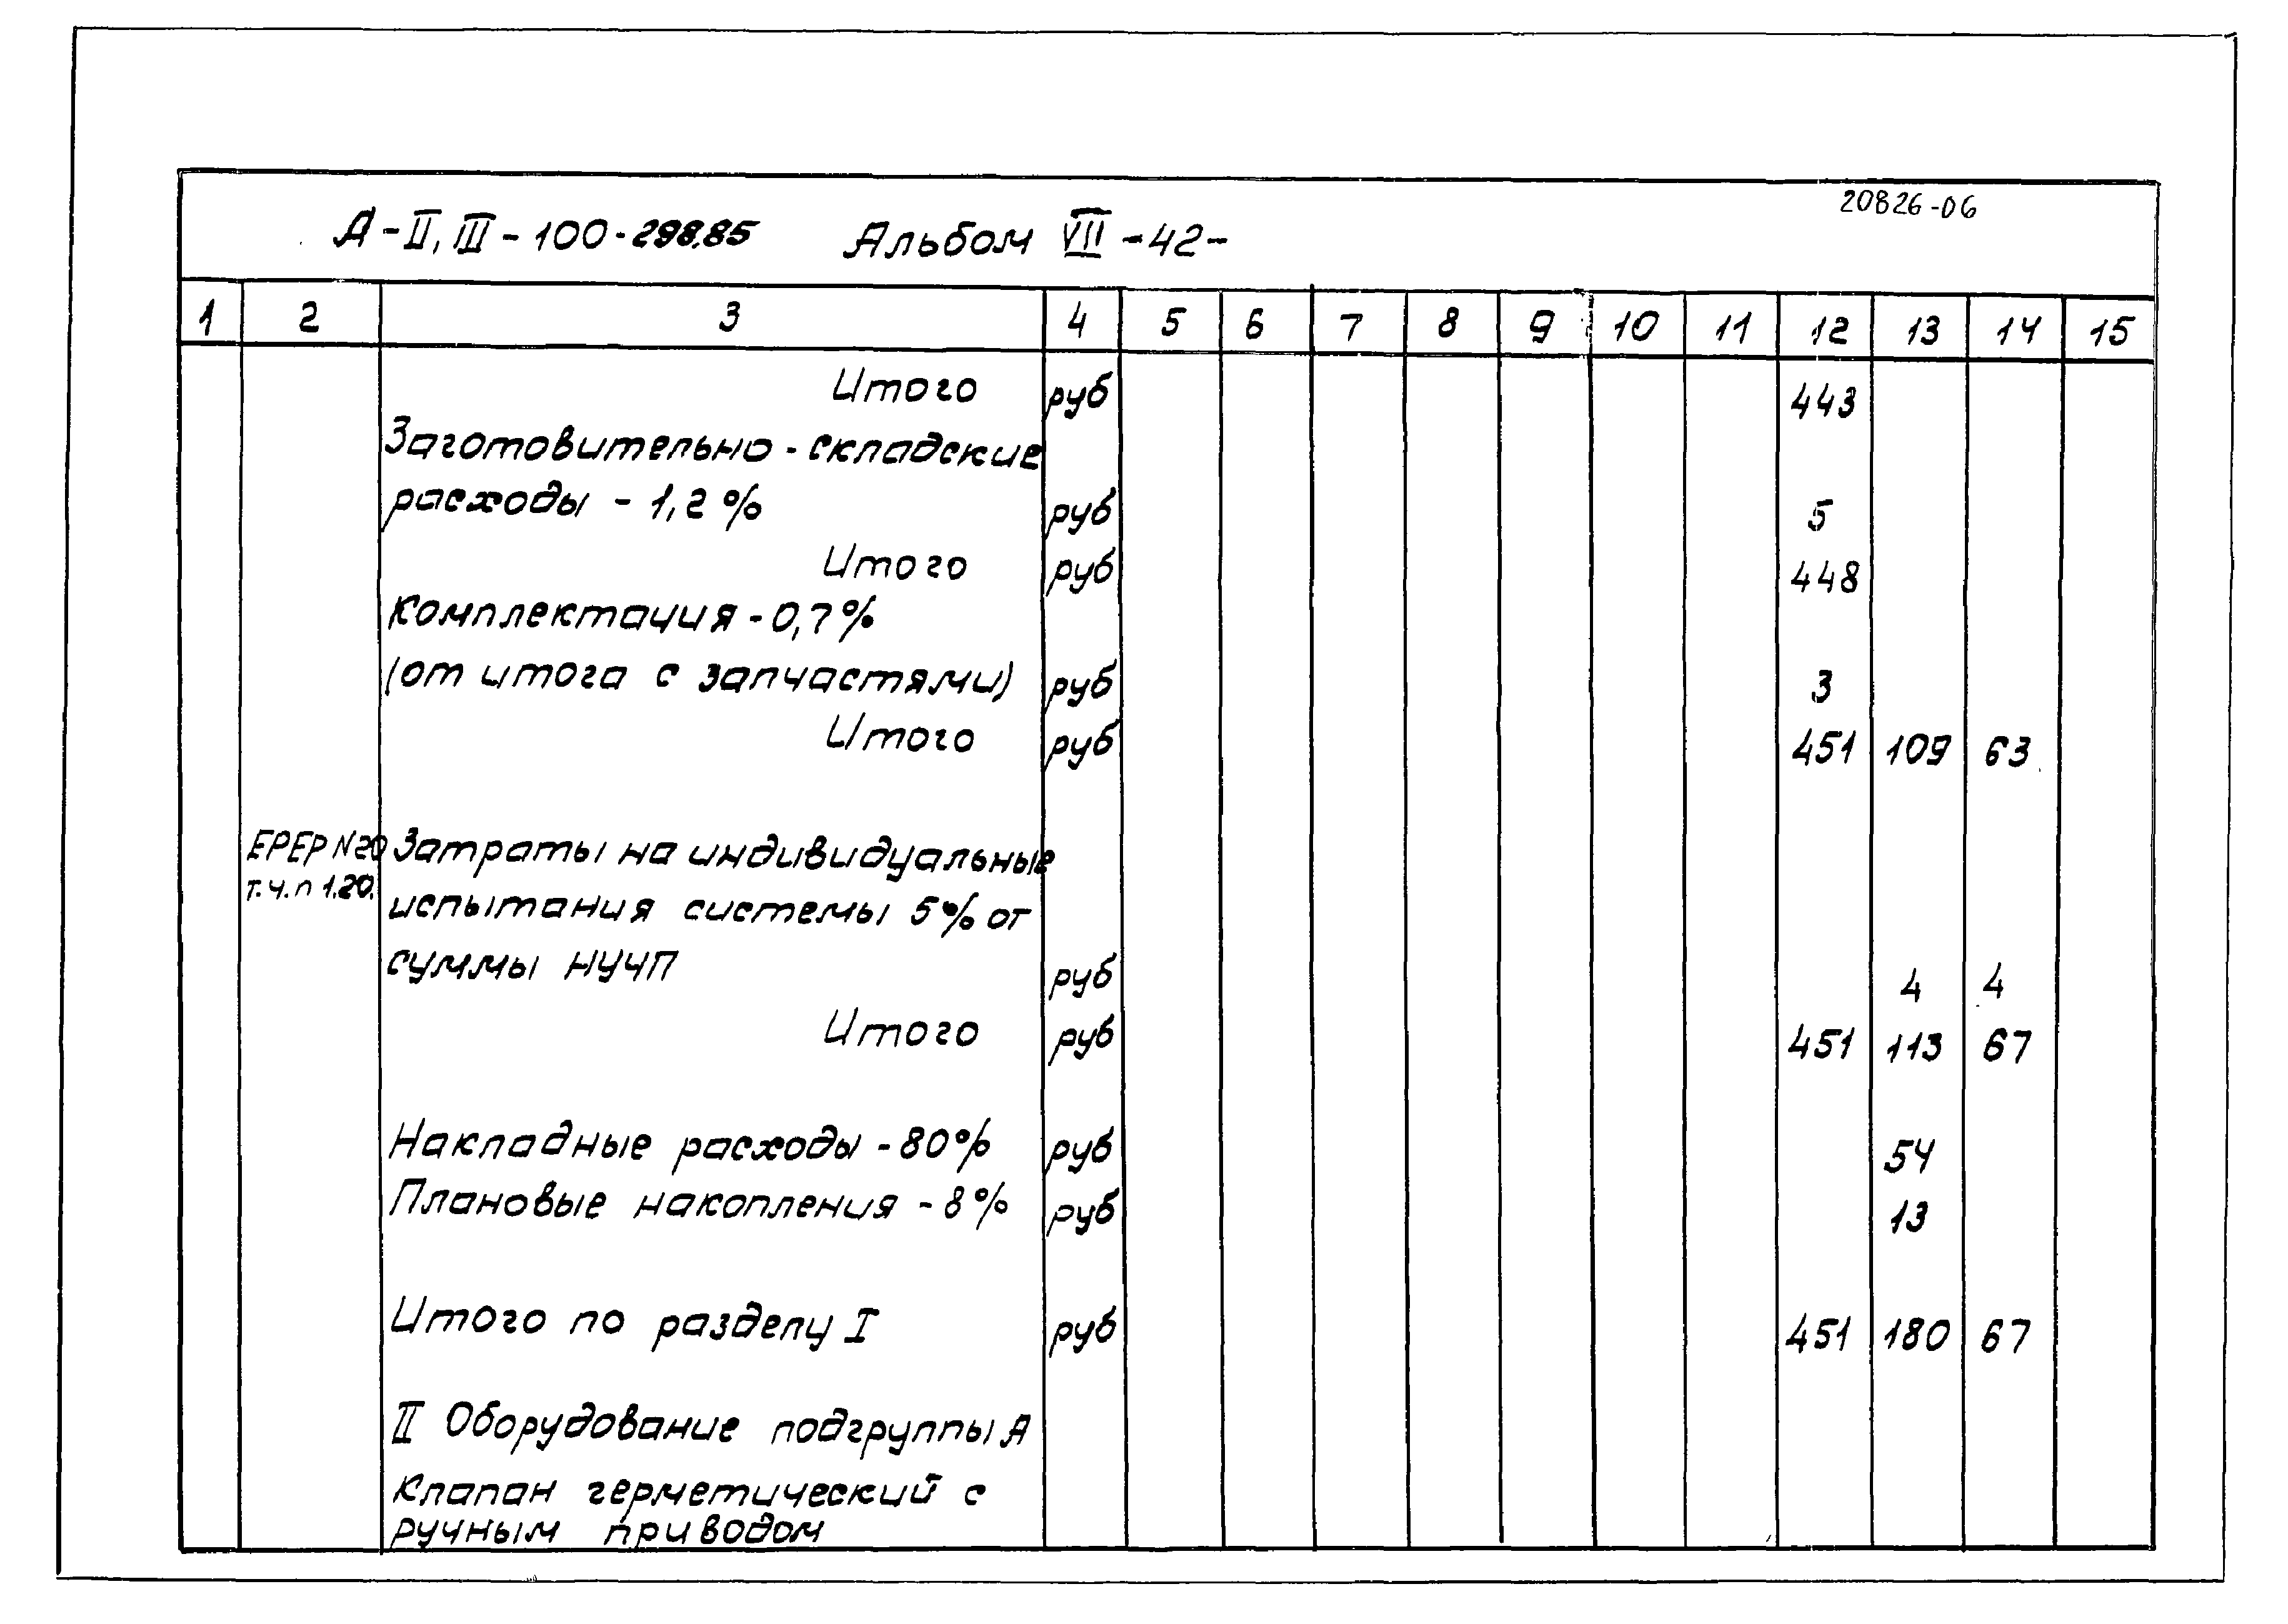 20826-06
А-II, III-100-298.85 Альбом VII -42-
1 2 3 4 5 6 7 8 9 10 11 12 13 14 15
Итого руб 443
Заготовительно-складские
расходы - 1,2% руб 5
Итого руб 448
Комплектация - 0,7%
(от итога с запчастями) руб 3
Итого руб 451 109 63
ЕРЕР N20 Затраты на индивидуальные
т.ч.п 1.20. испытания системы 5% от
суммы НУЧП руб 4 4
Итого руб 451 113 67
Накладные расходы - 80% руб 54
Плановые накопления - 8% руб 13
Итого по разделу I руб 451 180 67
II Оборудование подгруппы А
Клапан герметический с
ручным приводом